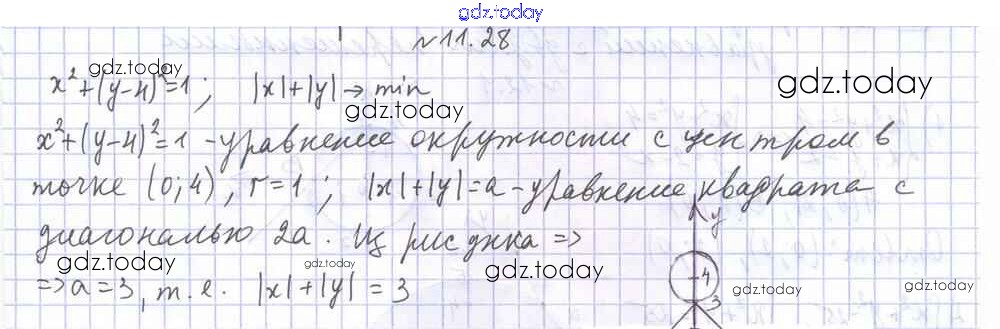 gdz.today
№ 11.28
x²+(y-4)²=1 ; |x|+|y| → min
gdz.today
gdz.today
gdz.today
x²+(y-4)²=1 - уравнение окружности с центром в
точке (0;4), r=1 ; |x|+|y|=a - уравнение квадрата с
диагональю 2a. Из рисунка ⇒
y
gdz.today
gdz.today
gdz.today
⇒ a=3, т.е. |x|+|y| = 3
4
gdz.today
3